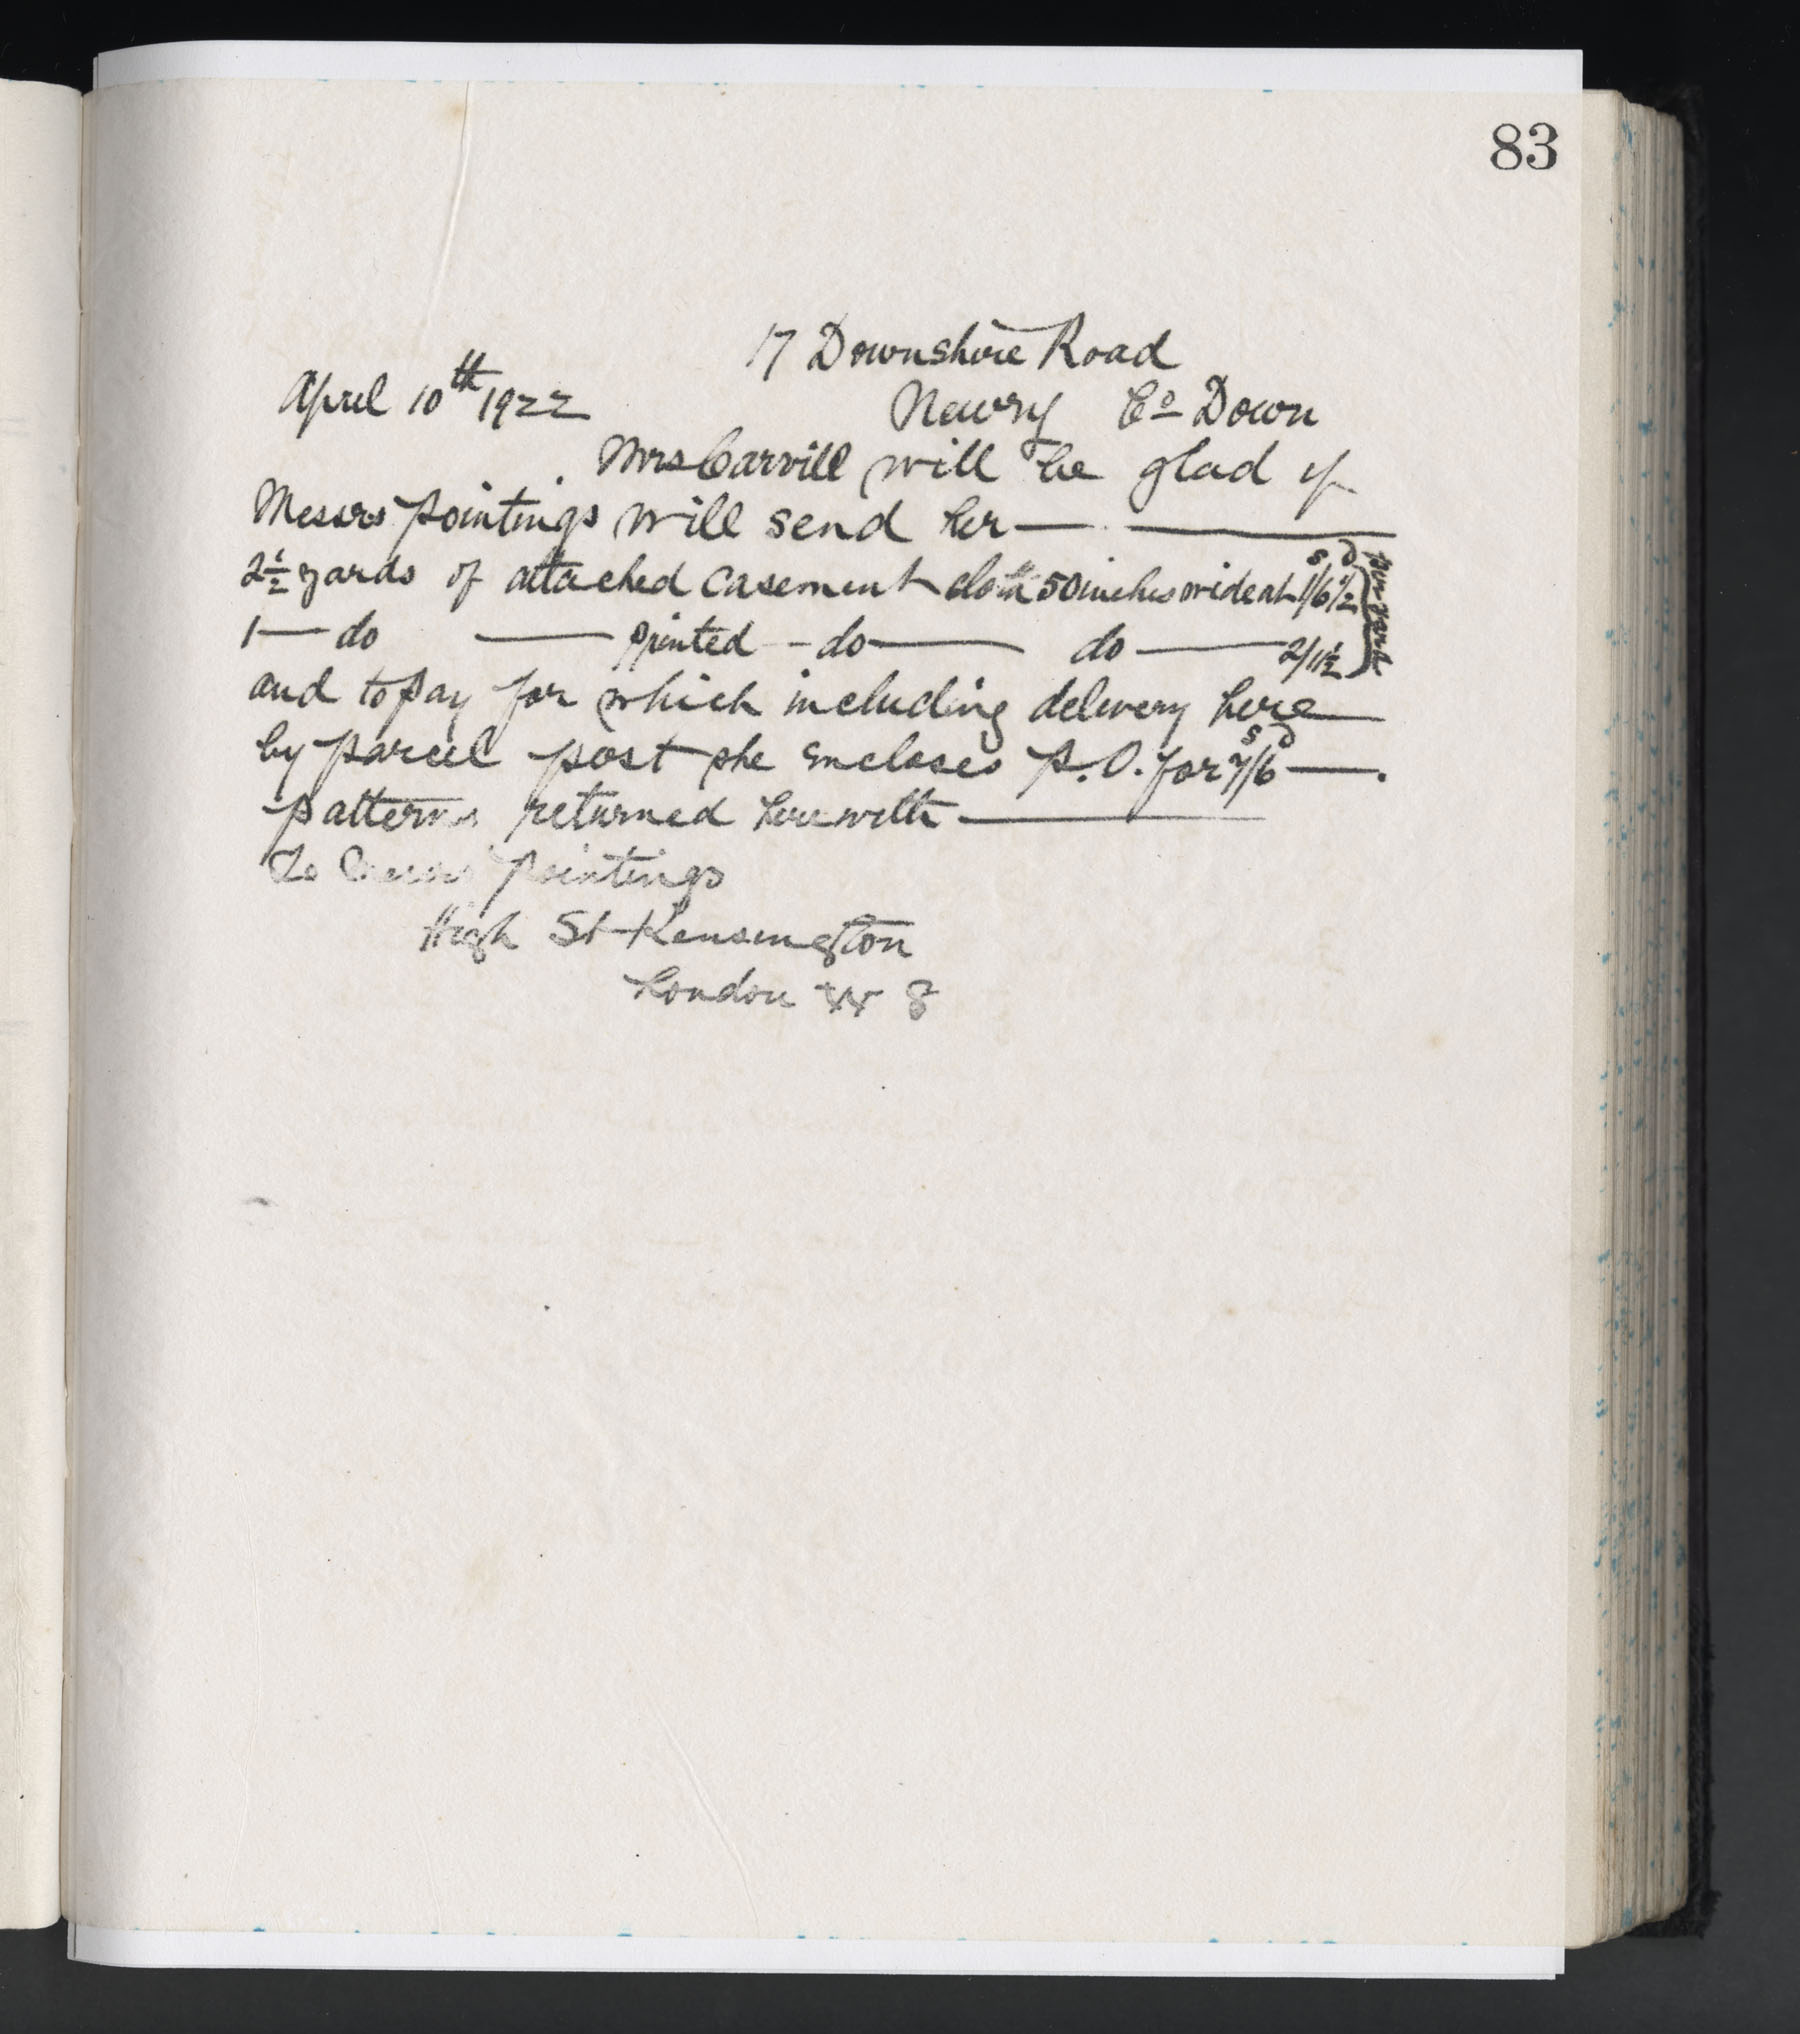 83
17 Downshire Road
April 10th 1922 Newry Co Down
Mrs Carvill will be glad if
Messrs Pointings will send her —
2½ yards of attached casement cloth 50 inches wide at 1/6½ } per yard
1 — do — printed — do — do — 2/11½
and to pay for which including delivery here
by parcel post she encloses P.O. for 7/6 —.
Patterns returned herewith —
To Messrs Pointings
High St Kensington
London W 8